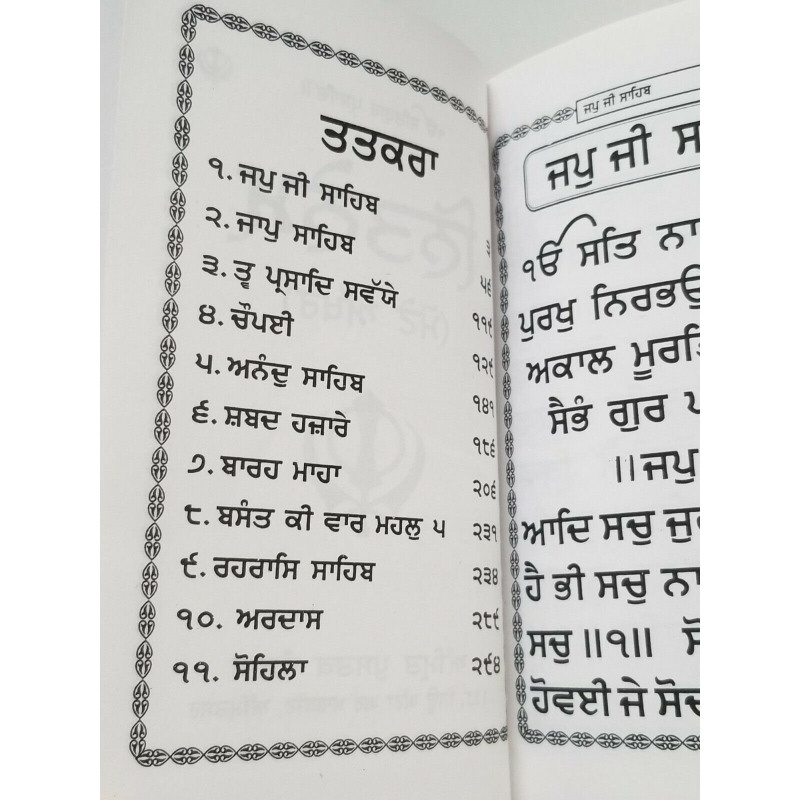 ਤਤਕਰਾ
੧. ਜਪੁ ਜੀ ਸਾਹਿਬ ੩
੨. ਜਾਪੁ ਸਾਹਿਬ ੫੬
੩. ਤ੍ਵ ਪ੍ਰਸਾਦਿ ਸਵੱਯੇ ੧੧੯
੪. ਚੌਪਈ ੧੨੯
੫. ਅਨੰਦੁ ਸਾਹਿਬ ੧੪੧
੬. ਸ਼ਬਦ ਹਜ਼ਾਰੇ ੧੮੬
੭. ਬਾਰਹ ਮਾਹਾ ੨੦੬
੮. ਬਸੰਤ ਕੀ ਵਾਰ ਮਹਲੁ ੫ ੨੩੧
੯. ਰਹਰਾਸਿ ਸਾਹਿਬ ੨੩੪
੧੦. ਅਰਦਾਸ ੨੮੯
੧੧. ਸੋਹਿਲਾ ੨੯੪
ਜਪੁ ਜੀ ਸਾਹਿਬ
ਜਪੁ ਜੀ ਸ
ੴ ਸਤਿ ਨਾ
ਪੁਰਖੁ ਨਿਰਭਉ
ਅਕਾਲ ਮੂਰਤਿ
ਸੈਭੰ ਗੁਰ ਪ
॥ਜਪੁ
ਆਦਿ ਸਚੁ ਜੁਗ
ਹੈ ਭੀ ਸਚੁ ਨਾ
ਸਚੁ ॥੧॥ ਸੋ
ਹੋਵਈ ਜੇ ਸੋਚ